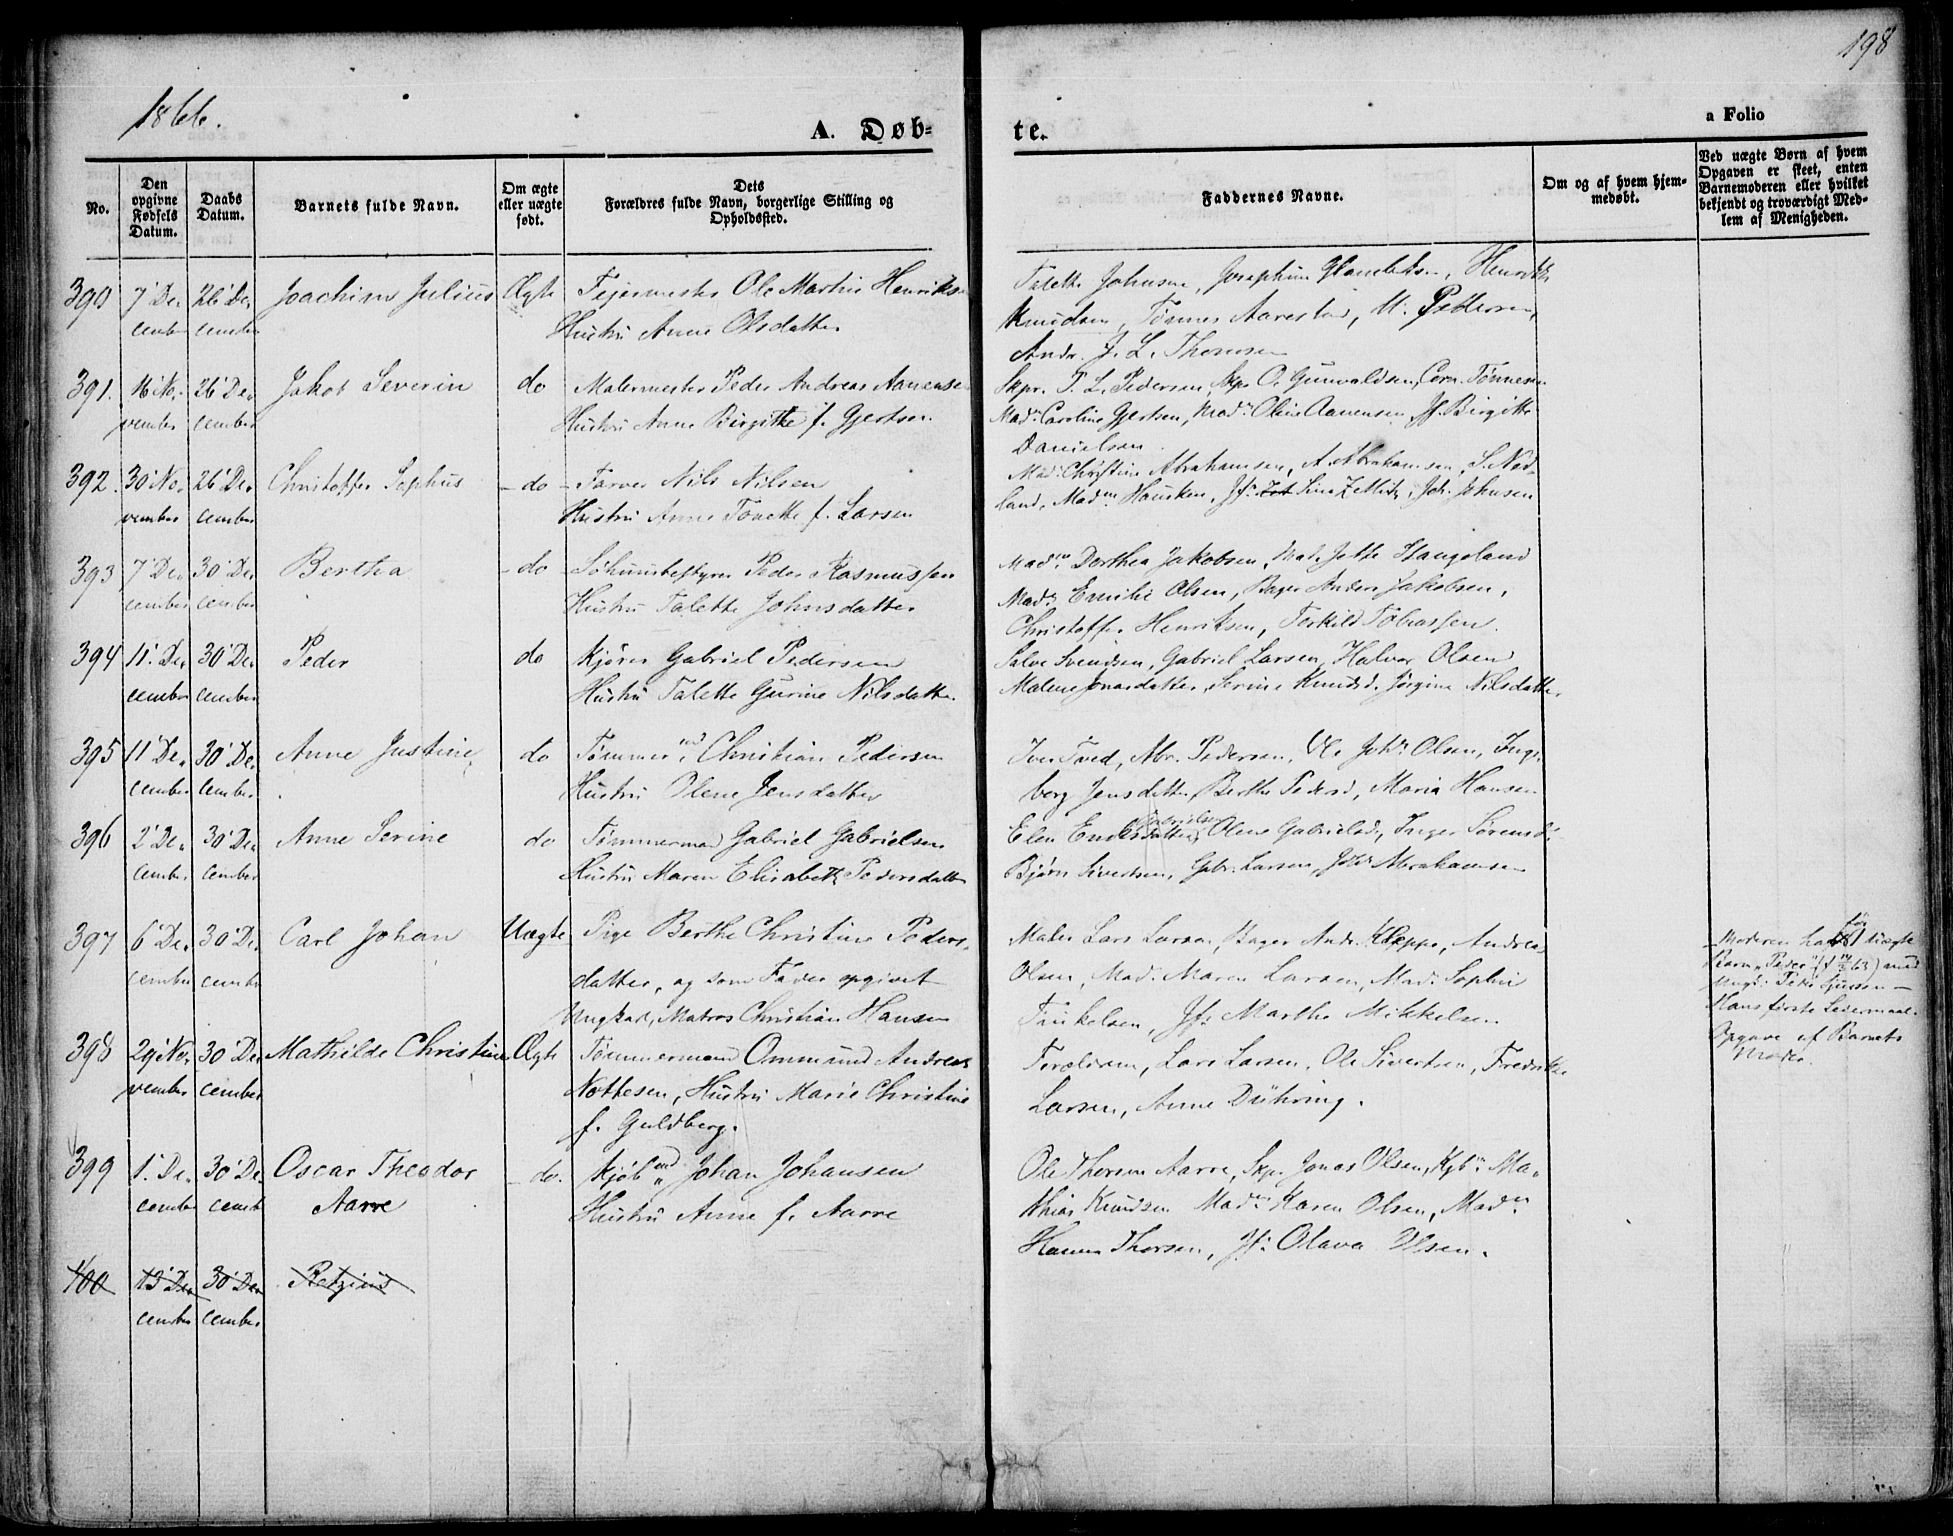 198
1866.
A. Døb-
te.
a Folio
No.
Den
opgivne
Fødsels
Datum.
Daabs
Datum.
Barnets fulde Navn.
Om ægte
eller uægte
født.
Dets
Forældres fulde Navn, borgerlige Stilling og
Opholdssted.
Faddernes Navne.
Om og af hvem hjem-
medøbt.
Ved uægte Børn af hvem
Opgaven er skeet, enten
Barnemoderen eller hvilket
bekjendt og troværdigt Med-
lem af Menigheden.
390 7' De- 26' De- Joachim Julius Ægte Fejermester Ole Martin Henriksen
cember cember Hustru Anne Olsdatter
Talette Johnsen, Josephine
Knudsen, Tønnes Aarestad, M. Pedersen,
Andr. J. L. Thomsen
391. 16 No- 26' De- Jakob Severin do Malermester Peder Andreas Aanensen
vember cember Hustru Anne Birgitte f. Gjertsen.
Skpr. P. L. Pedersen, Skpr O. Gunvaldsen, Corn. Tønnesen
Mad. Caroline Gjertsen, Mad. Oline Aanensen, Jf. Birgitte
Danielsen.
392. 30' No- 26' De- Christoffer Sophus - do - Farver Nils Nilsen
vember cember Hustru Anne Tonette f. Larsen
Mad: Christine Abrahamsen, A. Abrahamsen, S. Ned-
land, Madm Hausken, Jf: Sine Zetlitz, Joh. Johnsen
393 7' De- 30' De- Bertha - do - Peder Rasmussen
cember cember Hustru Talette Johnsdatter
Madm Dorthea Jakobsen, Mad. Jette Haugeland
Mad: Emilie Olsen, Bager Anders Jakobsen,
Christoffer Henriksen, Torkild Tobiassen.
394 11'. De- 30' De- Peder do Kjører Gabriel Pedersen
cember cember Hustru Talette Gurine Nilsdatter
Salve Svendsen, Gabriel Larsen, Halvor Olsen
Malene Jonasdatter, Serine Knudsd. Jørgine Nilsdatter
395 11' De- 30' De- Anne Justine do Tømmermd Christian Pedersen
cember cember Hustru Olene Jensdatter
Iver Tved, Abr. Pedersen, Ole Johs Olsen, Inge-
borg Jensdatter, Berthe Pedersd, Maria Hansen
396 2' De- 30' De- Anne Serine do Tømmermand Gabriel Gabrielsen
cember cember Hustru Maren Elisabeth Pedersdatter
Olene Gabrielsd, Inger Sørensd:
Bjørn Sivertsen, Gabr. Larsen, Abrahamsen
397 6' De- 30' De- Carl Johan Uægte Pige Berthe Christine Peders-
cember cember datter, og som Fader opgivet
Ungkarl, Matros Christian Hansen
Maler Lars Larsen, Bager Andr. Kleppe, Andreas
Olsen, Mad: Maren Larsen, Mad: Sophie
Torkelsen, Jf: Marthe Mikkelsen
Moderen har før 1 uægte
Barn "Peder" med
Ungk: Peter
Hans første Leiermaal.
Opgave af Barnets
Moder.
398 29' No- 30' De- Mathilde Christine Ægte Tømmermand Ommund Andreas
vember cember Nottesen, Hustru Marie Christine
f. Guldberg.
Forældrene, Lars Larsen, Ole Sivertsen, Fredrikke
Larsen, Anne Dühring.
399 1'. De- 30' De- Oscar Theodor - do. Kjøbmd Johan Johansen
cember cemb Aarre Hustru Anne f. Aarre
Ole Thorsen Aarre, Skp. Jonas Olsen, Kjbm Ma-
thias Knudsen Madm Karen Olsen, Madm
Hanna Thorsen, Jf: Olava Olsen.
400 13' De- 30' De- Retzius
cember cember